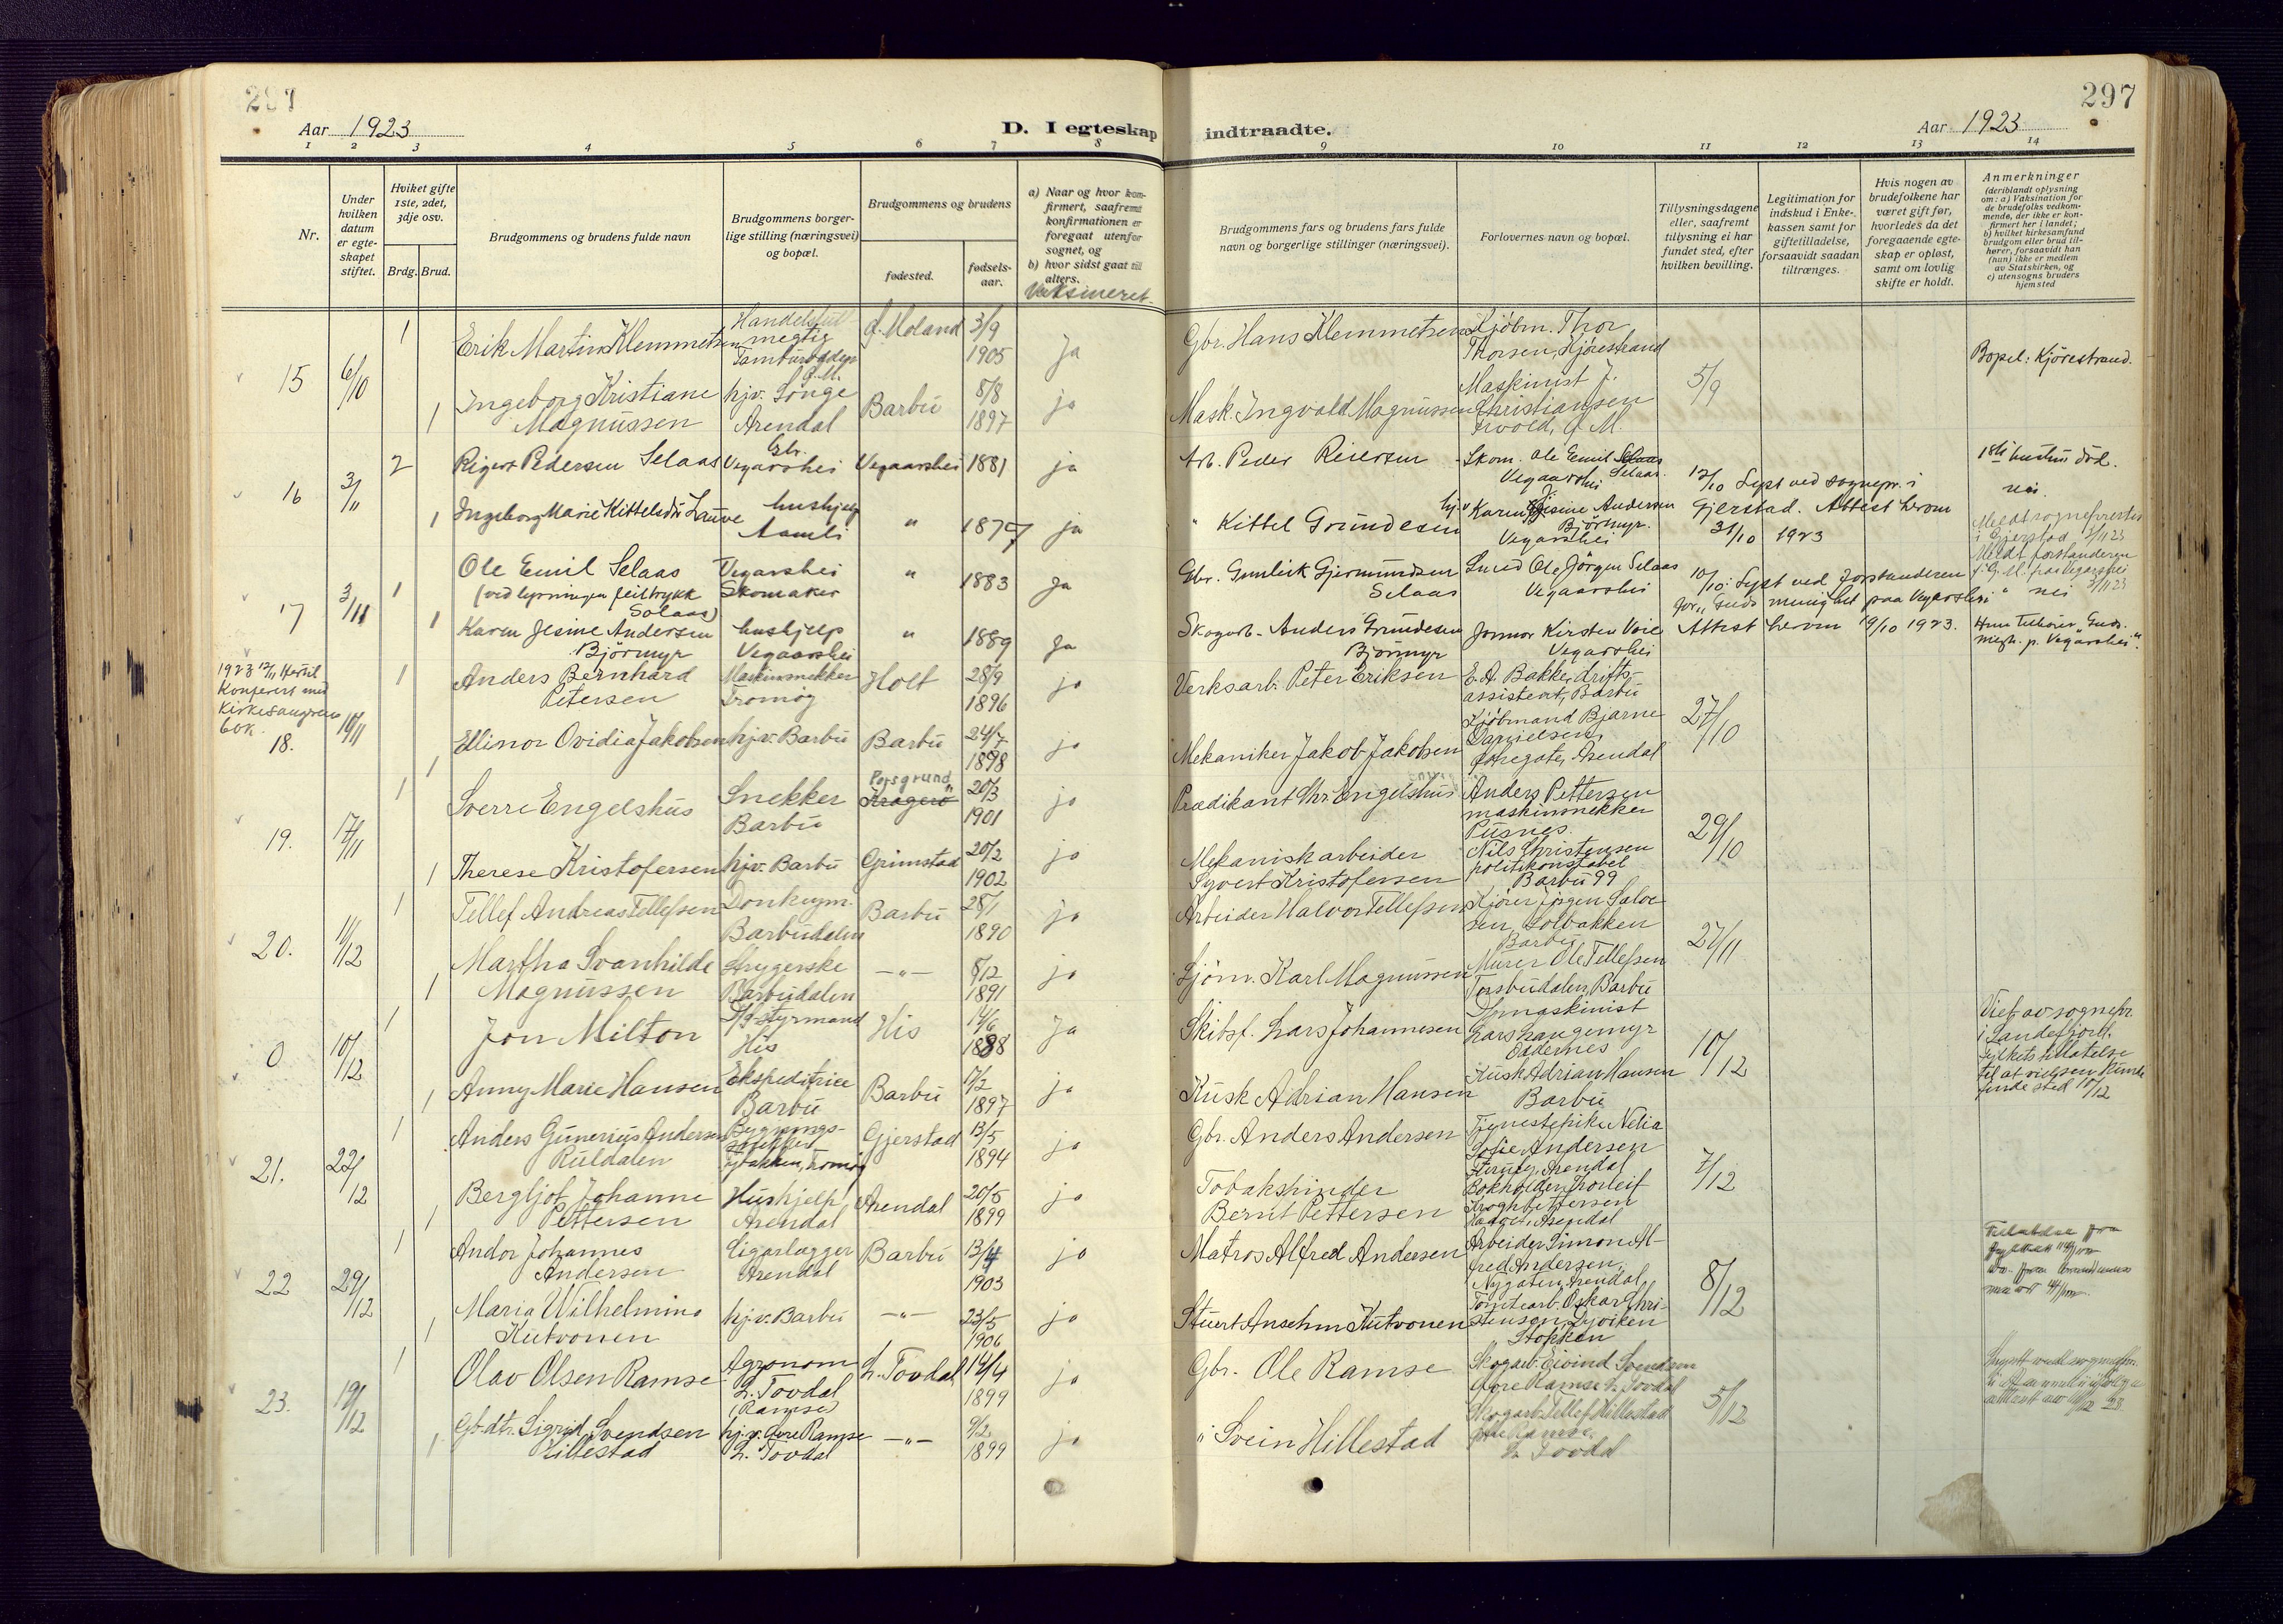 297
297
Aar 1923
D. I egteskap indtraadte.
Aar 1923
1 2 3 4 5 6 7 8 9 10 11 12 13 14
Nr.
Under hvilken datum er egteskapet stiftet.
Hviket gifte 1ste, 2det, 3dje osv.
Brdg. Brud.
Brudgommens og brudens fulde navn
Brudgommens borgerlige stilling (næringsvei) og bopæl.
Brudgommens og brudens
fødested.
fødselsaar.
a) Naar og hvor konfirmert, saafremt konfirmationen er foregaat utenfor sognet, og
b) hvor sidst gaat til alters.
Vaksineret
Brudgommens fars og brudens fars fulde navn og borgerlige stillinger (næringsvei).
Forlovernes navn og bopæl.
Tillysningsdagene eller, saafremt tillysning ei har fundet sted, efter hvilken bevilling.
Legitimation for indskud i Enkekassen samt for giftetilladelse, forsaavidt saadan tiltrænges.
Hvis nogen av brudefolkene har været gift før, hvorledes da det foregaaende egteskap er opløst, samt om lovlig skifte er holdt.
Anmerkninger (deriblandt oplysning om: a) Vaksination for de brudefolks vedkommende, der ikke er konfirmert her i landet; b) hvilket kirkesamfund brudgom eller brud tilhører, forsaavidt han (hun) ikke er medlem av Statskirken, og c) utensogns bruders hjemsted
15 6/10
1 Erik Martin Klemmetsen
megtig
Ø. Moland 3/9 1905 Ja
Gbr. Hans Klemmetsen
Kjøbm. Thor Thorsen, Kjörestrand
5/9
Bopel: Kjörestrand.
1 Ingeborg Kristiane Magnussen
hjv. Songe Arendal
Barbu 8/8 1897 ja
Mask. Ingvald Magnussen
Maskinist J. Christiansen
16 3/11
2 Rigert Pedersen Selaas
Gbr. Vegarshei
Vegaarshei 1881 ja
Arb. Peder Reiersen
Skom. Ole Emil Selaas Vegaarshei
12/10 Lyst ved sognepr. i Gjerstad. Attest herom 31/10 1923
nei.
1 Ingeborg Marie Kittelsdtr Lauve
hushjelp Aamli
" 1877 ja
" Kittel Grundesen
hj.v Karen Jesine Andersen Björmyr. Vegarshei
Meldt sognepresten i Gjerstad 3/11 23
17 3/11
1 Ole Emil Selaas
(ved lysningen feiltrykk Solaas)
Vegarshei Skomaker
" 1883 Ja
Gbr. Gunleik Gjermundsen Selaas
Smed Ole Jörgen Selaas Vegaarshei
10/10. Lyst ved Forstanderen for "Guds menighet paa Vegarshei"
Attest herom 19/10 1923.
nei
1 Karen Jesine Andersen Björmyr
hushjelp Vegaarshei
" 1889 Ja
Skogarb. Anders Grundesen Björmyr
Jormor Kirsten Voie Vegarshei
Hun tilhører Guds megh. p. Vegårshei".
1923 12/11 Hertil Konferert med Kirkesangerens bok.
18. 10/11
1 Anders Bernhard Petersen
Maskinsnekker Tromøy
Holt 28/9 1896 ja
Verksarb. Peter Eriksen
E.A. Bakke, driftsassistent, Barbu
27/10
1 Ellinor Ovidia Jakobsen
hjv. Barbu
Barbu 24/7 1898 ja
Mekaniker Jakob Jakobsen
Kjöbmand Bjarne Danielsen, Østregate, Arendal
19. 17/11
1 Sverre Engelshus
Snekker Barbu
Porsgrund Kragerø 20/3 1901 ja
Prædikant Chr. Engelshus
Anders Pettersen maskinsnekker Pusnes.
29/10
1 Therese Kristofersen
hjv. Barbu
Grimstad 20/2 1902 ja
Mekanisk arbeider Syvert Kristofersen
Nils Christensen politikonstabel Barbu 99
20. 11/12
1 Tellef Andreas Tellefsen
Donkeym. Barbudalen
Barbu 28/1 1890 ja
Arbeider Halvor Tellefsen
Kjører Jörgen Salvesen, Solbakken Barbu
27/11
1 Martha Svanhilde Magnussen
Strygerske Barbudalen
—"— 5/12 1891 ja
Sjöm. Karl Magnussen
Murer Ole Tellefsen Torsbudalen, Barbu
0 10/12
1 Jon Milton
styrmand His
His 14/6 1888 Ja
Skibsf. Lars Johannesen
maskinist Lars Haugemyr
10/12
Viet av sognepr. i Sandefjord. Fylkets tillatelse til at vielsen kunde finde sted 10/12
1 Anny Marie Hansen
Ekspeditrice Barbu
Barbu 17/2 1897 ja
Kusk Adrian Hansen
Kusk Adrian Hansen Barbu
21. 22/12
1 Anders Gunerius Andersen Ruldalen
Bygningssnekker Tybakken, Tromøy
Gjerstad 13/5 1894 ja
Gbr. Anders Andersen
Tjenestepike Nelia Sofie Andersen
Arendal
7/12
1 Bergljot Johanne Pettersen
Hushjelp, Arendal
Arendal 20/5 1899 ja
Tobakspinder Bernt Pettersen
Bokholder Thorleif Krogh Pettersen
Arendal
22 29/12
1 Andor Johannes Andersen
Cigarlægger Arendal
Barbu 13/4 1903 ja
Matros Alfred Andersen
Arbeider Simon Alfred Andersen, Nygaten, Arendal
8/12
1 Maria Wilhelmine Kutvonen
hj.v. Barbu
—"— 23/5 1906 ja
Stuert Anselm Kutvonen
Tomtearb. Oskar Christensen, Djviken
Stokken
23. 19/12
1 Olav Olsen Ramse
Agronom L. Tovdal (Ramse)
L. Tovdal 14/4 1899 ja
Gbr. Ole Ramse
Skogarb. Eivind Svendsen Øvre Ramse L. Tovdal
5/12
1 Gb.dtr. Sigrid Svendsen Hillestad
hj.v. Øvre Ramse L. Tovdal
—"— 9/2 1899 ja
" Svein Hillestad
Skogarb. Tellef Hillestad
Ramse. L. Tovdal